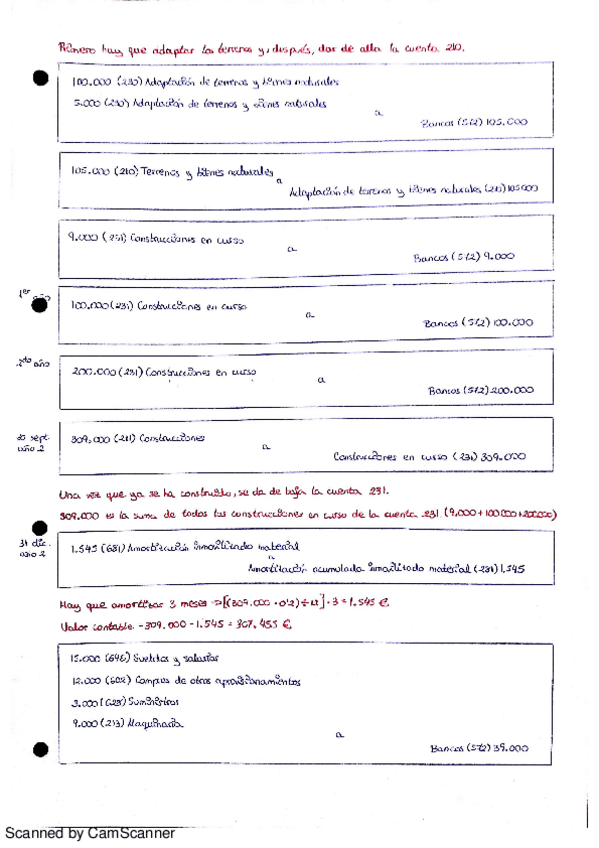 Primero hay que adaptar los terrenos y, después, dar de alta la cuenta 210.
100.000 (230) Adaptación de terrenos y bienes naturales
5.000 (230) Adaptación de terrenos y bienes naturales
a
Bancos (572) 105.000
105.000 (210) Terrenos y bienes naturales
a
Adaptación de terrenos y bienes naturales (210) 105000
9.000 (231) Construcciones en curso
a
Bancos (572) 9.000
1er año
100.000 (231) Construcciones en curso
a
Bancos (572) 100.000
2do año
200.000 (231) Construcciones en curso
a
Bancos (572) 200.000
30 sept. año 2
309.000 (211) Construcciones
a
Construcciones en curso (231) 309.000
Una vez que ya se ha construido, se da de baja la cuenta 231.
309.000 es la suma de todas las construcciones en curso de la cuenta 231. (9.000+100.000+200.000)
31 dic. año 2
1.545 (681) Amortización inmovilizado material
a
Amortización acumulada inmovilizado material (281) 1.545
Hay que amortizar 3 meses => [(309.000 · 0'2) ÷ 12] · 3 = 1.545 €
Valor contable - 309.000 - 1.545 = 307.455 €
15.000 (640) Sueldos y salarios
12.000 (602) Compras de otros aprovisionamientos
3.000 (628) Suministros
9.000 (213) Maquinaria
a
Bancos (572) 39.000
Scanned by CamScanner